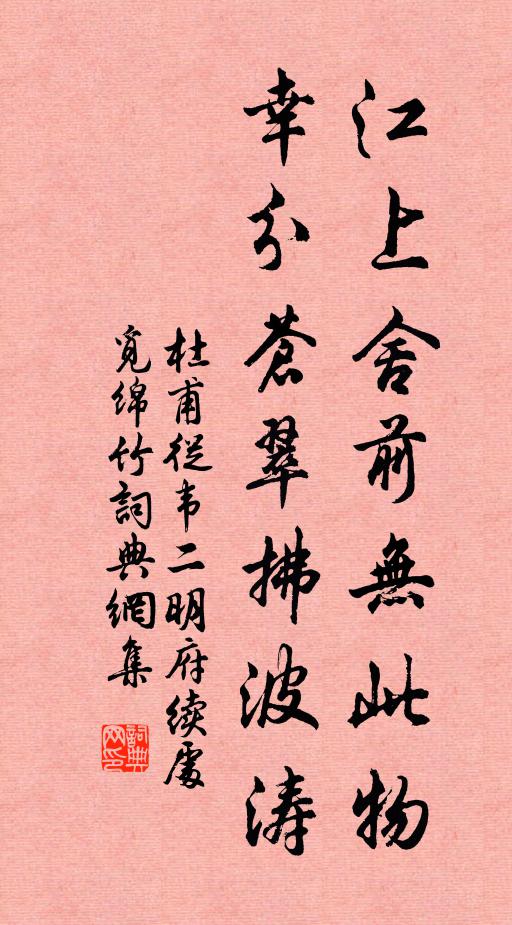 江上舍前無此物
幸分蒼翠拂波濤
杜甫從韦二明府续處
覓绵竹詞典網集
詞典網印